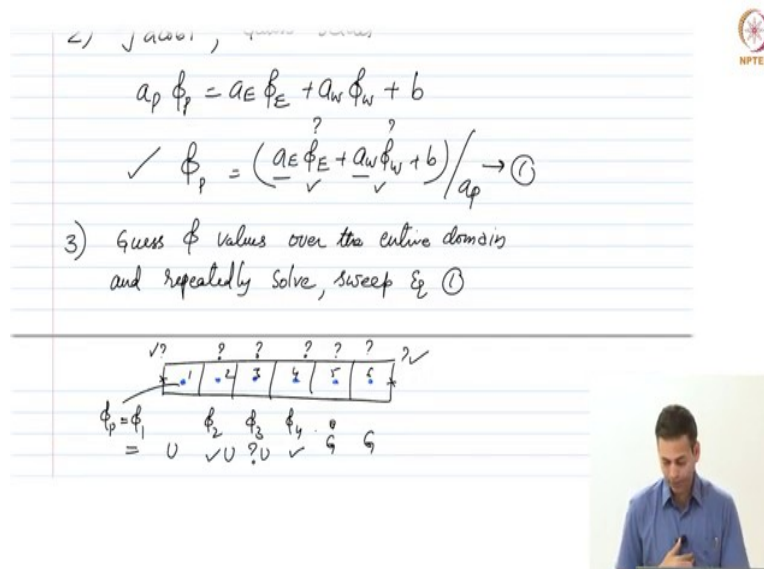 2) Jacobi,
NPTEL
aₚ ϕₚ = a_E ϕ_E + a_w ϕ_w + b
? ?
✓ ϕₚ = (a_E ϕ_E + a_w ϕ_w + b) / aₚ → ①
✓ ✓
3) Guess ϕ values over the entire domain
and repeatedly solve, sweep Eq ①
✓? ? ? ? ? ? ?✓
1 2 3 4 5 6
ϕₚ = ϕ₁ ϕ₂ ϕ₃ ϕ₄
= U ✓U ?U ✓ G G